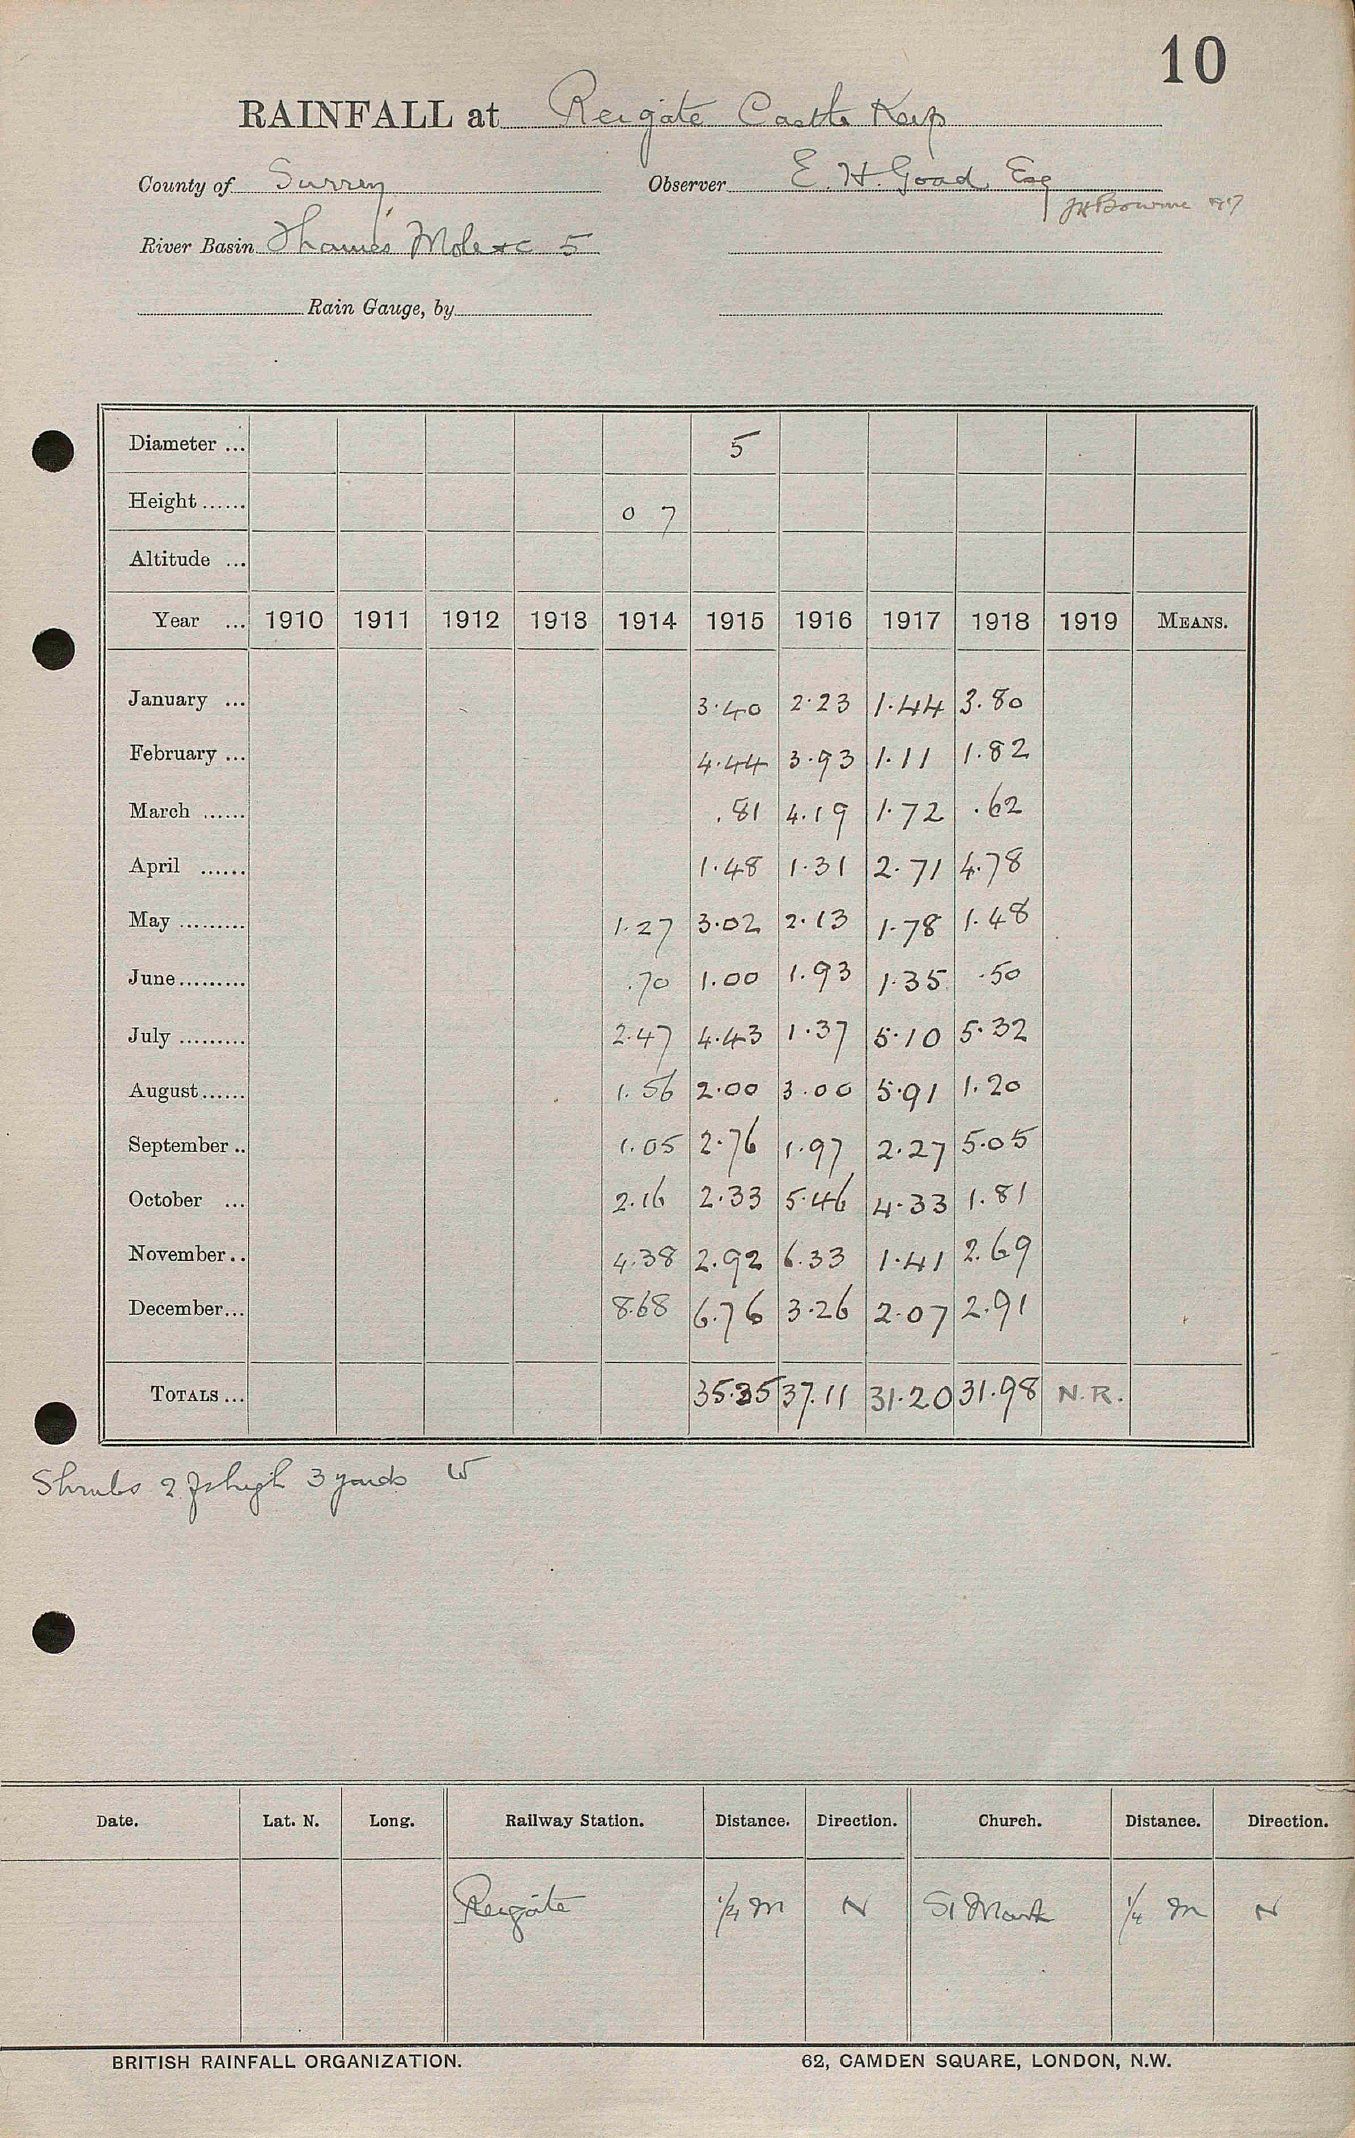 10
RAINFALL at Reigate Castle Keep
County of Surrey Observer E. H. Goad, Esq
JH Bourne 1917
River Basin Thames Mole &c 5
Rain Gauge, by
Diameter ... 5
Height ...... 0 7
Altitude ...
Year ... 1910 1911 1912 1913 1914 1915 1916 1917 1918 1919 MEANS.
January ... 3.40 2.23 1.44 3.80
February ... 4.44 3.93 1.11 1.82
March ...... .81 4.19 1.72 .62
April ...... 1.48 1.31 2.71 4.78
May ......... 1.27 3.02 2.13 1.78 1.48
June ......... .70 1.00 1.93 1.35 .50
July ......... 2.47 4.43 1.37 5.10 5.32
August ...... 1.56 2.00 3.00 5.91 1.20
September .. 1.05 2.76 1.97 2.27 5.05
October ... 2.16 2.33 5.46 4.33 1.81
November .. 4.38 2.92 6.33 1.41 2.69
December ... 8.68 6.76 3.26 2.07 2.91
TOTALS ... 35.35 37.11 31.20 31.98 N.R.
Shrubs 2 ft high 3 yards W
Date. Lat. N. Long. Railway Station. Distance. Direction. Church. Distance. Direction.
Reigate 1/4 M N St Mark 1/4 M N
BRITISH RAINFALL ORGANIZATION. 62, CAMDEN SQUARE, LONDON, N.W.